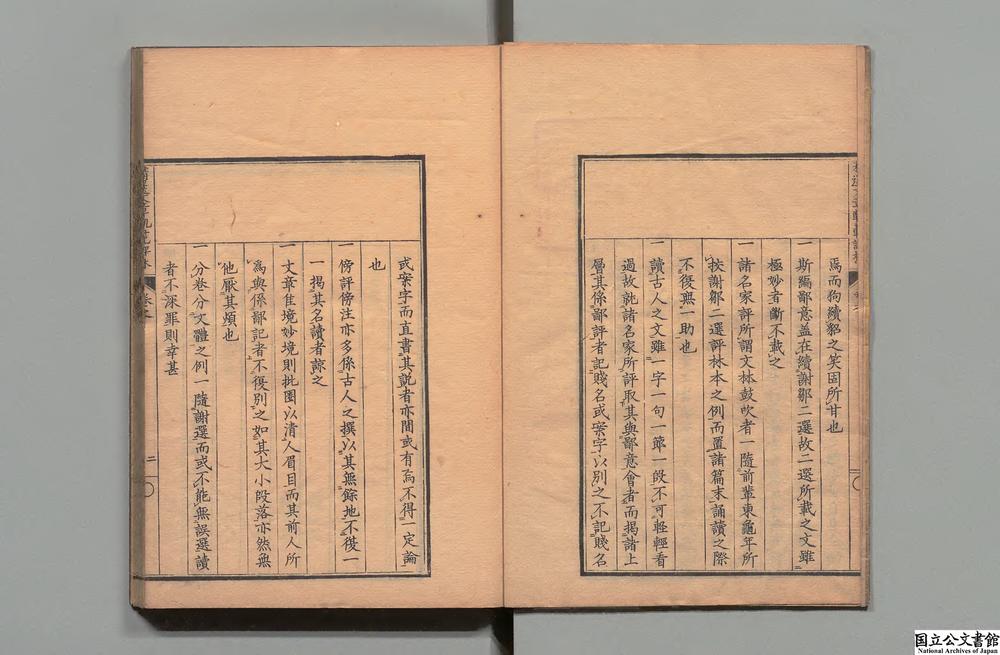 焉而狗續貂之笑固所甘也
一斯編鄙意盖在續謝鄒二選故二選所載之文雖
極妙者斷不載之
一諸名家評所謂文林鼓吹者一隨前輩東龜年所
挍謝鄒二選評林本之例而置諸篇末誦讀之際
不復無一助也
一讀古人之文雖一字一句一節一段不可輕輕看
過故就諸名家所評取其與鄙意會者而揭諸上
層其係鄙評者記賤名或案字以別之不記賤名
或案字而直書其說者亦間或有焉不得一定論
也
一傍評傍注亦多係古人之撰以其無餘地不復一
一揭其名讀者諒之
一文章佳境妙境則批圈以清人眉目而其前人所
爲與係鄙記者不復別之如其大小段落亦然無
他厭其煩也
一分卷分文體之例一隨謝選而或不能無誤選讀
者不深罪則幸甚
二
国立公文書館
National Archives of Japan